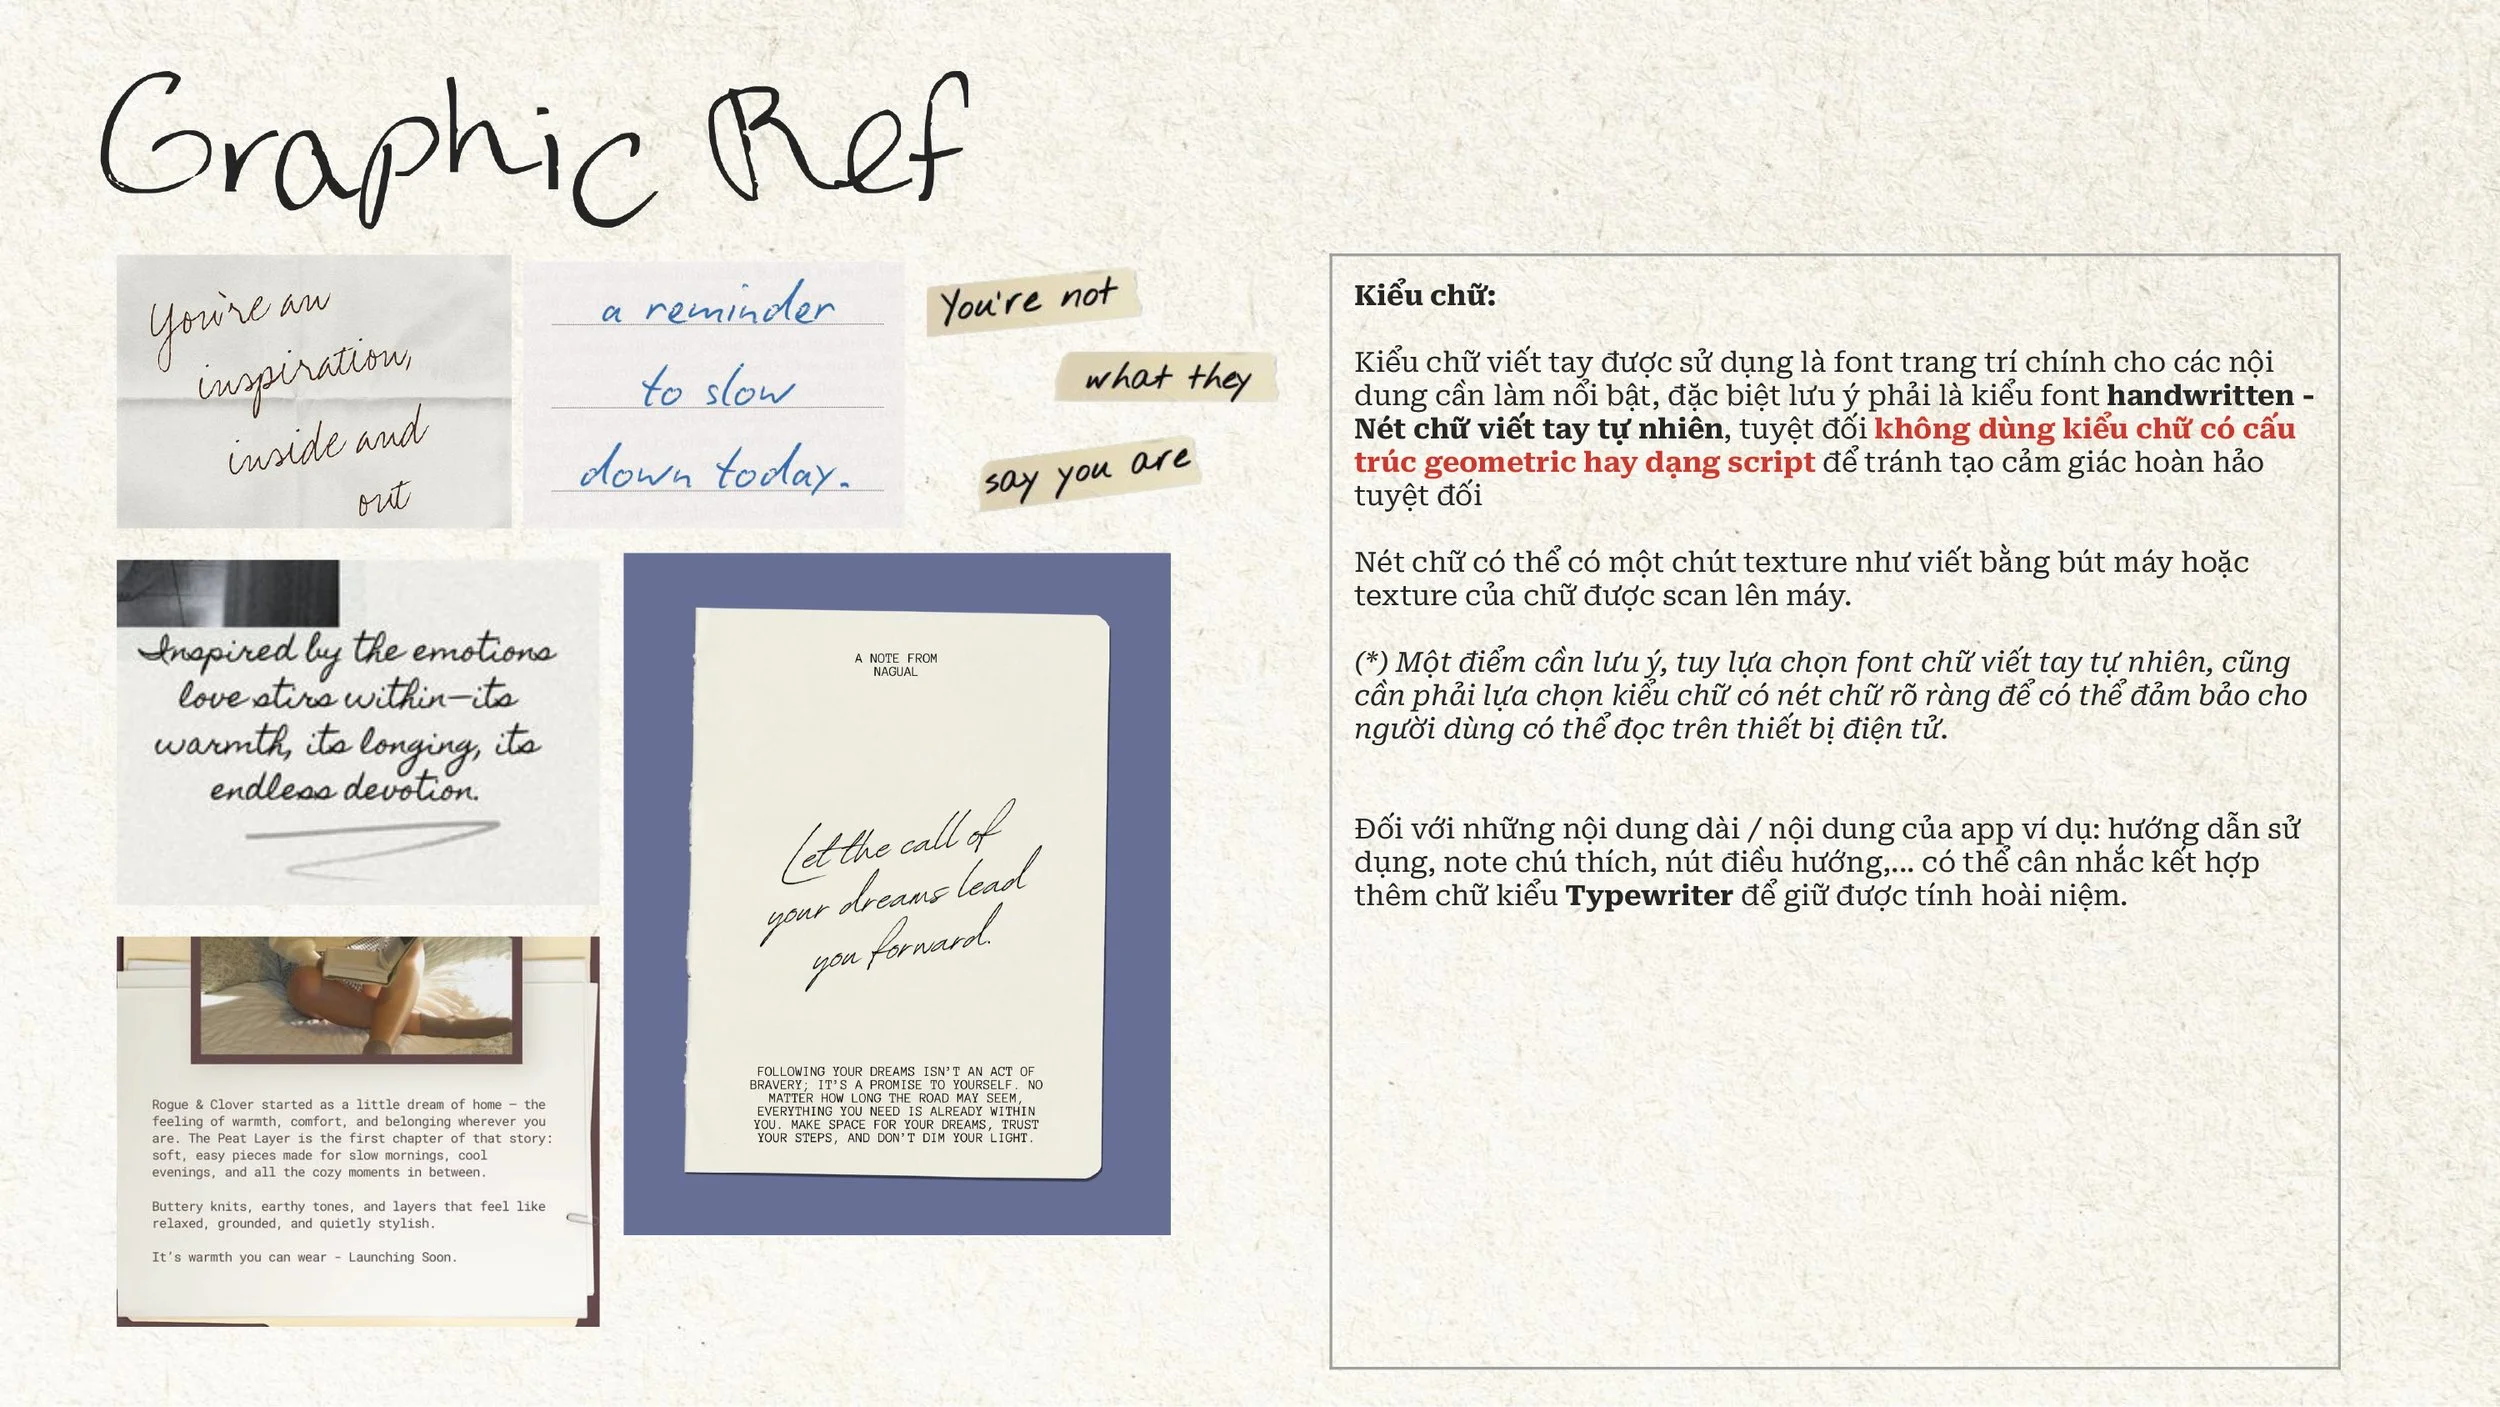 Graphic Ref
You're an
inspiration,
inside and
out
a reminder
to slow
down today.
You're not
what they
say you are
Inspired by the emotions
love stirs within—its
warmth, its longing, its
endless devotion.
A NOTE FROM
NAGUAL
Let the call of
your dreams lead
you forward.
FOLLOWING YOUR DREAMS ISN'T AN ACT OF
BRAVERY; IT'S A PROMISE TO YOURSELF. NO
MATTER HOW LONG THE ROAD MAY SEEM,
EVERYTHING YOU NEED IS ALREADY WITHIN
YOU. MAKE SPACE FOR YOUR DREAMS, TRUST
YOUR STEPS, AND DON'T DIM YOUR LIGHT.
Rogue & Clover started as a little dream of home – the
feeling of warmth, comfort, and belonging wherever you
are. The Peat Layer is the first chapter of that story:
soft, easy pieces made for slow mornings, cool
evenings, and all the cozy moments in between.
Buttery knits, earthy tones, and layers that feel like
relaxed, grounded, and quietly stylish.
It's warmth you can wear - Launching Soon.
Kiểu chữ:
Kiểu chữ viết tay được sử dụng là font trang trí chính cho các nội
dung cần làm nổi bật, đặc biệt lưu ý phải là kiểu font handwritten -
Nét chữ viết tay tự nhiên, tuyệt đối không dùng kiểu chữ có cấu
trúc geometric hay dạng script để tránh tạo cảm giác hoàn hảo
tuyệt đối
Nét chữ có thể có một chút texture như viết bằng bút máy hoặc
texture của chữ được scan lên máy.
(*) Một điểm cần lưu ý, tuy lựa chọn font chữ viết tay tự nhiên, cũng
cần phải lựa chọn kiểu chữ có nét chữ rõ ràng để có thể đảm bảo cho
người dùng có thể đọc trên thiết bị điện tử.
Đối với những nội dung dài / nội dung của app ví dụ: hướng dẫn sử
dụng, note chú thích, nút điều hướng,... có thể cân nhắc kết hợp
thêm chữ kiểu Typewriter để giữ được tính hoài niệm.